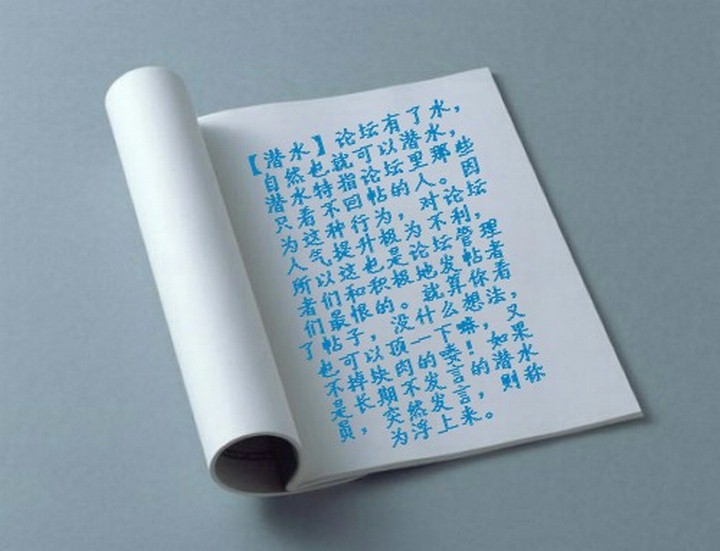 【潜水】论坛有了水，
自然也就可以潜水，
潜水特指论坛里那些
只看不回帖的人。因
为这种行为，对论坛
人气提升极为不利，
所以这也是论坛管理
者们和积极地发帖者
们最恨的。就算你看
了帖子，没什么想法，
也可以顶一下嘛，又
不掉块肉的喽！如果
是长期不发言的潜水
员，突然发言，则称
为浮上来。